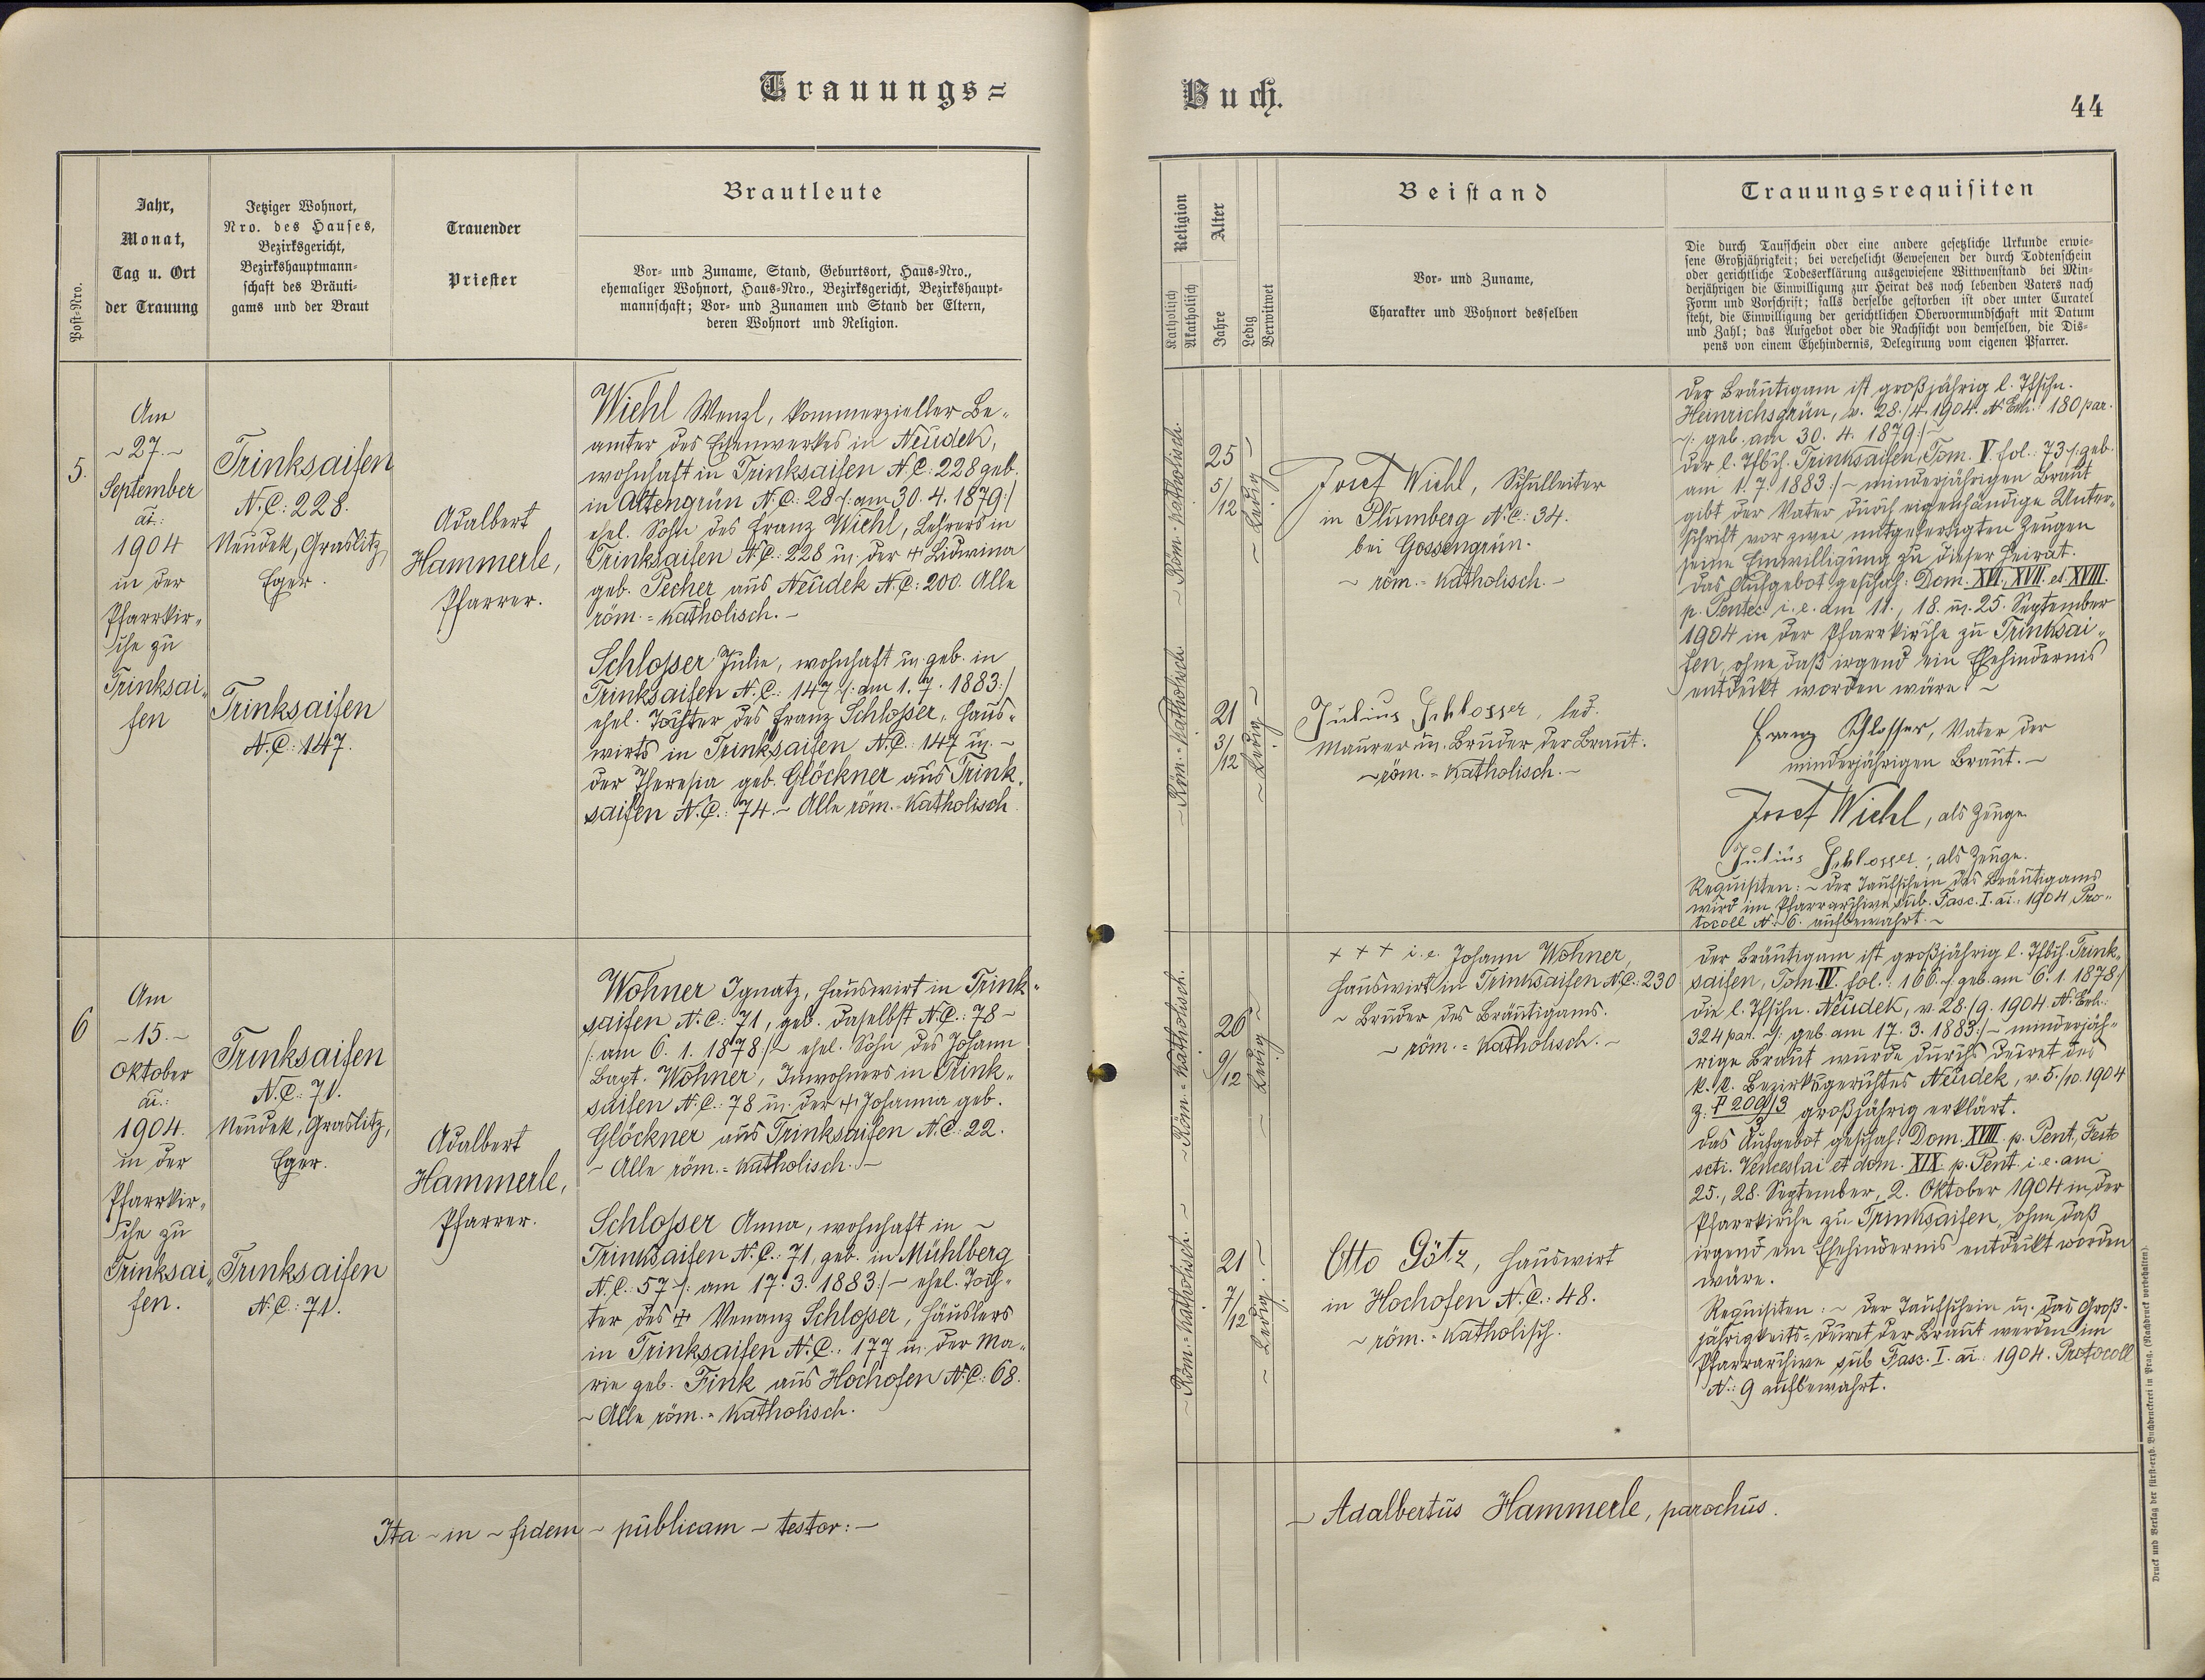 Trauungs=
Buch.
44
Post=Nro.
Jahr,
Monat,
Tag u. Ort
der Trauung
Jetziger Wohnort,
Nro. des Hauses,
Bezirksgericht,
Bezirkshauptmann=
schaft des Bräuti=
gams und der Braut
Trauender
Priester
Brautleute
Vor= und Zuname, Stand, Geburtsort, Haus=Nro.,
ehemaliger Wohnort, Haus=Nro., Bezirksgericht, Bezirkshaupt=
mannschaft; Vor= und Zunamen und Stand der Eltern,
deren Wohnort und Religion.
Religion
Katholisch
Akatholisch
Alter
Jahre
Ledig
Verwitwet
Beistand
Vor= und Zuname,
Charakter und Wohnort desselben
Trauungsrequisiten
Die durch Taufschein oder eine andere gesetzliche Urkunde erwie=
sene Großjährigkeit; bei verehelicht Gewesenen der durch Todtenschein
oder gerichtliche Todeserklärung ausgewiesene Wittwenstand bei Min=
derjährigen die Einwilligung zur Heirat des noch lebenden Vaters nach
Form und Vorschrift; falls derselbe gestorben ist oder unter Curatel
steht, die Einwilligung der gerichtlichen Obervormundschaft mit Datum
und Zahl; das Aufgebot oder die Nachsicht von demselben, die Dis=
pens von einem Ehehindernis, Delegirung vom eigenen Pfarrer.
5.
Am
~ 27. ~
September
ai.:
1904
in der
Pfarrkir„
che zu
Trinksai„
fen
Trinksaifen
N.C.: 228.
Neudek, Graslitz,
Eger.
Trinksaifen
N.C.: 147.
Adalbert
Hammerle,
Pfarrer.
Wiehl Wenzl, kommerzieller Be„
amter des Eisenwerkes in Neudek,
wohnhaft in Trinksaifen N.C.: 228 geb.
in Altengrün N.C.: 28 /: am 30. 4. 1879 :/
ehel. Sohn des Franz Wiehl, Lehrers in
Trinksaifen N.C.: 228 u. der + Lidwina
geb. Pecher aus Neudek N.C.: 200. Alle
röm.=katholisch. ~
Schlosser Julie, wohnhaft u. geb. in
Trinksaifen N.C.: 147 /: am 1. 7. 1883 :/
ehel. Tochter des Franz Schlosser, Haus„
wirts in Trinksaifen N.C.: 147 u. ~
der Theresia geb. Glöckner aus Trink„
saifen N.C.: 74. ~ Alle röm.=katholisch
~ Röm.=katholisch.
~ Röm.=katholisch
25
5/12
~ Ledig ~
21
3/12
~ Ledig ~
Josef Wiehl, Schulleiter
in Plumberg N.C.: 34.
bei Gossengrün.
~ röm.=katholisch. ~
Julius Schlosser, led.
Maurer u. Bruder der Braut.
~ röm.=katholisch. ~
Der Bräutigam ist großjährig l. Tfschn.
Heinrichsgrün, v. 28./4. 1904. N. Exh.: 180 par.
/: geb. am 30. 4. 1879 :/ ~
Der l. Tfbch. Trinksaifen, Tom. V. fol.: 73 /: geb.
am 1. 7. 1883 :/ ~ minderjährigen Braut
gibt der Vater durch eigenhändige Unter„
schrift vor zwei mitgefertigten Zeugen
seine Einwilligung zu dieser Heirat.
Das Aufgebot geschah: Dom. XVI., XVII. et XVIII.
p. Pentec. i. e. am 11., 18. u. 25. September
1904 in der Pfarrkirche zu Trinksai„
fen, ohne daß irgend ein Ehehindernis
entdeckt worden wäre. ~
Franz Schlosser, Vater der
minderjährigen Braut. ~
Josef Wiehl, als Zeuge
Julius Schlosser, als Zeuge.
Requisiten: ~ Der Taufschein des Bräutigams
wird im Pfarrarchive sub. Fasc. I. ai.: 1904 Pro„
tocoll N.: 6. aufbewahrt. ~
6
Am
~ 15. ~
Oktober
ai.:
1904.
in der
Pfarrkir„
che zu
Trinksai„
fen.
Trinksaifen
N.C.: 71.
Neudek, Graslitz,
Eger.
Trinksaifen
N.C.: 71.
Adalbert
Hammerle,
Pfarrer.
Wohner Ignatz, Hauswirt in Trink„
saifen N.C.: 71, geb. daselbst N.C.: 78 ~
/: am 6. 1. 1878 :/ ~ ehel. Sohn des Johann
Bapt. Wohner, Inwohners in Trink„
saifen N.C.: 78 u. der + Johanna geb.
Glöckner aus Trinksaifen N.C.: 22.
~ Alle röm.=katholisch. ~
Schlosser Anna, wohnhaft in ~
Trinksaifen N.C.: 71, geb. in Mühlberg
N.C.: 57 /: am 17. 3. 1883 :/ ~ ehel. Toch„
ter des + Venanz Schlosser, Häuslers
in Trinksaifen N.C.: 177 u. der Ma„
rie geb. Fink aus Hochofen N.C.: 68.
~ Alle röm.=katholisch.
~ Röm.=katholisch.
~ Röm.=katholisch. ~
26
9/12
~ Ledig ~
21
7/12
~ Ledig. ~
+ + + i. e. Johann Wohner,
Hauswirt in Trinksaifen N.C.: 230
~ Bruder des Bräutigams.
~ röm.=katholisch. ~
Otto Götz, Hauswirt
in Hochofen N.C.: 48.
~ röm.=katholisch.
Der Bräutigam ist großjährig l. Tfbch. Trink„
saifen, Tom. IV. fol.: 166. /: geb. am 6. 1. 1878 :/
Die l. Tfschn. Neudek, v. 28./9. 1904 N. Exh.:
324 par. /: geb. am 17. 3. 1883 :/ ~ minderjäh„
rige Braut wurde durchs Decret des
k. k. Bezirksgerichtes Neudek, v. 5./10. 1904
Z.: P 209/3 großjährig erklärt.
3
Das Aufgebot geschah: Dom. XVIII. p. Pent., Festo
scti. Venceslai et dom. XIX. p. Pent. i. e. am
25., 28. September, 2. Oktober 1904 in der
Pfarrkirche zu Trinksaifen, ohne daß
irgend ein Ehehindernis entdeckt worden
wäre.
Requisiten: ~ Der Taufschein u. das Groß„
jährigkeits=Decret der Braut werden im
Pfarrarchive sub Fasc. I. ai.: 1904. Protocoll
N.: 9 aufbewahrt.
Ita ~ in ~ fidem ~ publicam ~ testor: ~
~ Adalbertus Hammerle, parochus.
Druck und Verlag der fürst=erzb. Buchdruckerei in Prag. (Nachdruck vorbehalten).